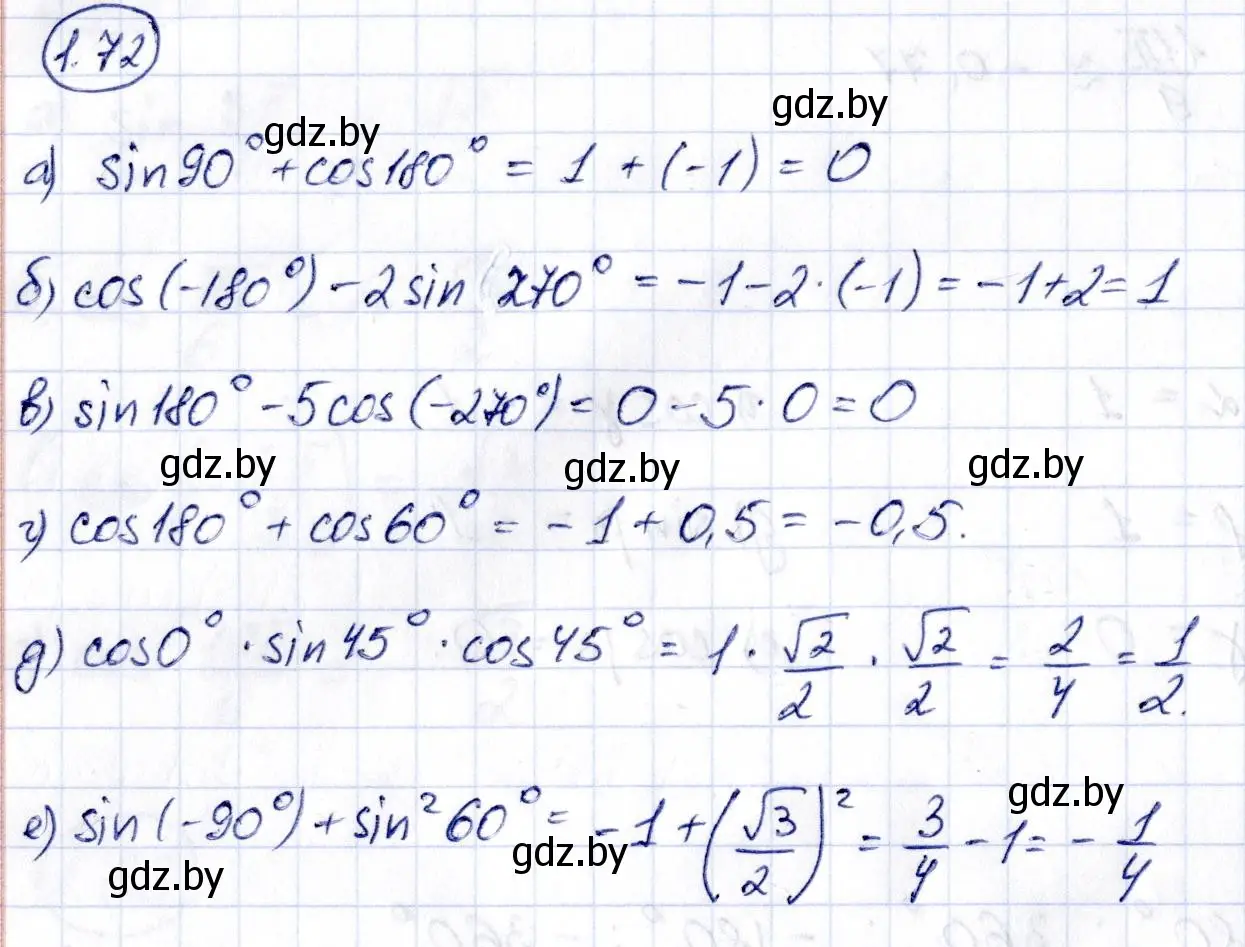 1.72
gdz.by
gdz.by
а) sin 90° + cos 180° = 1 + (-1) = 0
б) cos (-180°) - 2 sin 270° = -1 - 2 · (-1) = -1 + 2 = 1
в) sin 180° - 5 cos (-270°) = 0 - 5 · 0 = 0
gdz.by gdz.by gdz.by
г) cos 180° + cos 60° = -1 + 0,5 = -0,5.
д) cos 0° · sin 45° · cos 45° = 1 · √2/2 · √2/2 = 2/4 = 1/2.
gdz.by
е) sin (-90°) + sin² 60° = -1 + (√3/2)² = 3/4 - 1 = -1/4
gdz.by gdz.by